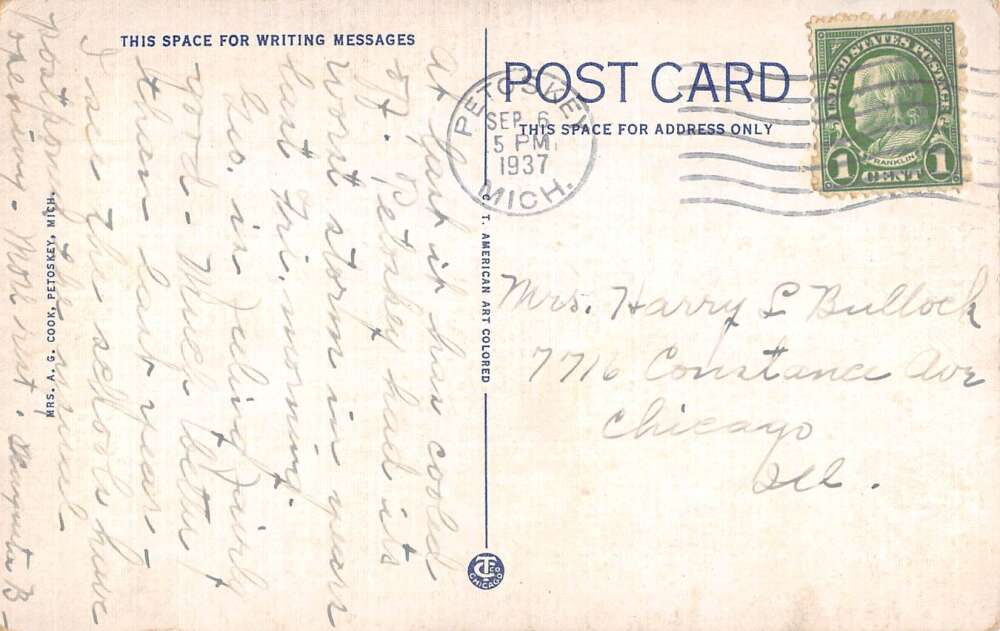 THIS SPACE FOR WRITING MESSAGES
POST CARD
THIS SPACE FOR ADDRESS ONLY
PETOSKEY
SEP 6
5 PM
1937
MICH.
UNITED STATES POSTAGE
FRANKLIN
1 CENT 1
At last it has cooled
off. Petoskey had its
worst storm in years
last Fri. morning.
Geo. is feeling fairly
good - Much better
than last year -
I see the schools have
postponed their
opening - More rest.
B -
MRS. A. G. COOK, PETOSKEY, MICH.
C. T. AMERICAN ART COLORED
Mrs. Harry L Bullock
7716 Constance Ave
Chicago
Ill.
CT CO
CHICAGO